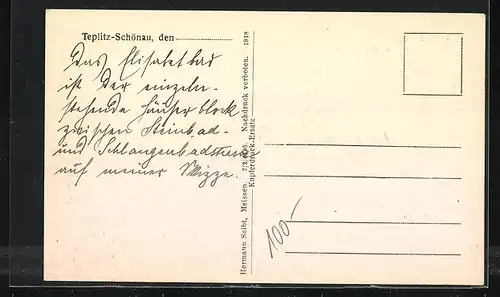 Teplitz-Schönau, den
Das Elisabetbad
ist der einzeln-
stehende Häuserblock
zwischen Steinbad-
und Schlangenbadstrasse
auf meiner Skizze.
Hermann Seibt, Meissen. Nachdruck verboten. 1918
Kupferdruck-Ersatz
100.-